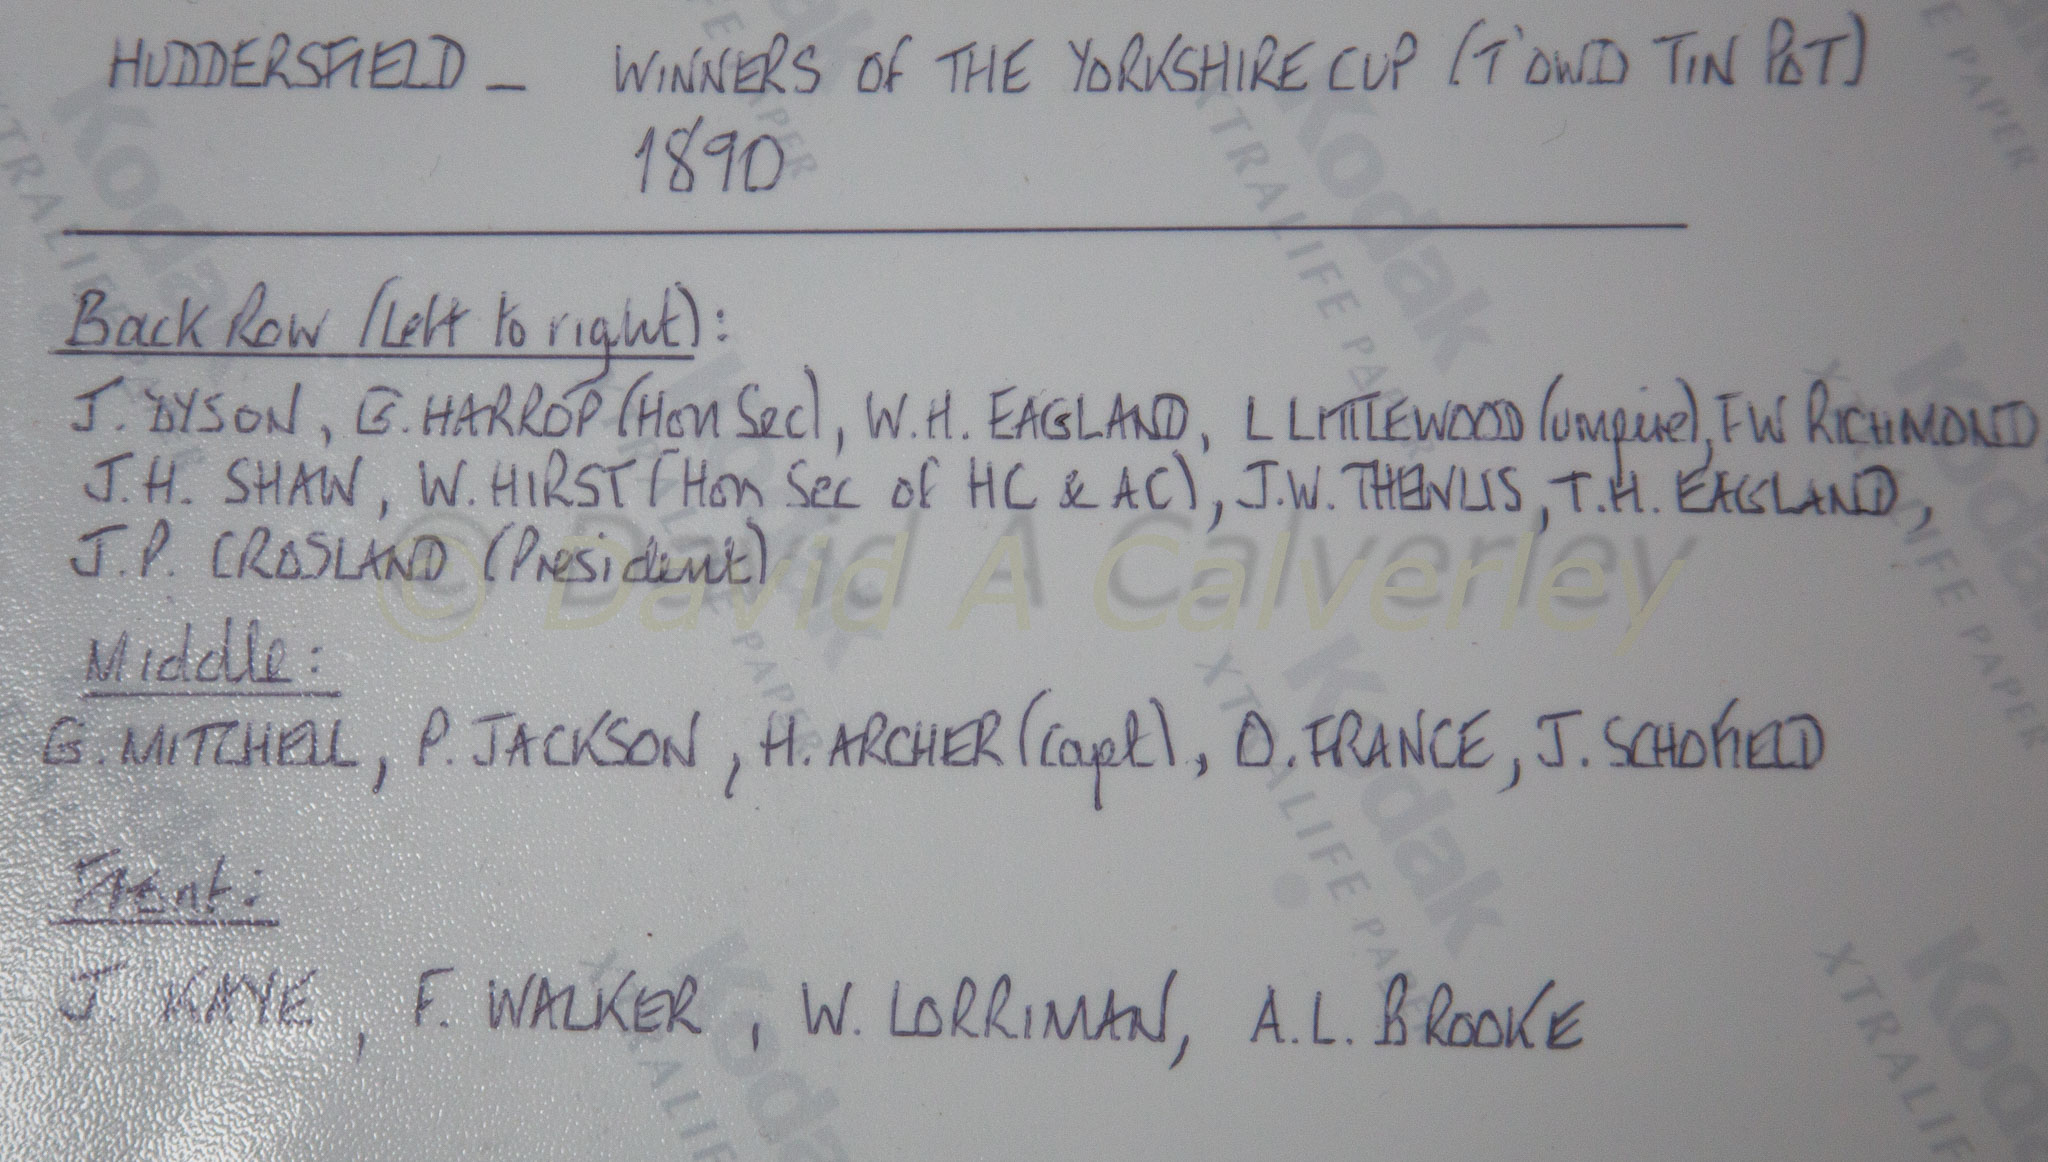 HUDDERSFIELD - WINNERS OF THE YORKSHIRE CUP (T'OWD TIN POT)
1890
Back Row (left to right):
J. DYSON, G. HARROP (Hon Sec), W.H. EAGLAND, L LITTLEWOOD (umpire), FW RICHMOND
J.H. SHAW, W. HIRST (Hon Sec of HC & AC), J.W. THEWLIS, T.H. EAGLAND,
J.P. CROSLAND (President)
© David A Calverley
Middle:
G. MITCHELL, P. JACKSON, H. ARCHER (capt), O. FRANCE, J. SCHOFIELD
Front:
J. KAYE, F. WALKER, W. LORRIMAN, A.L. BROOKE
Kodak
XTRALIFE PAPER